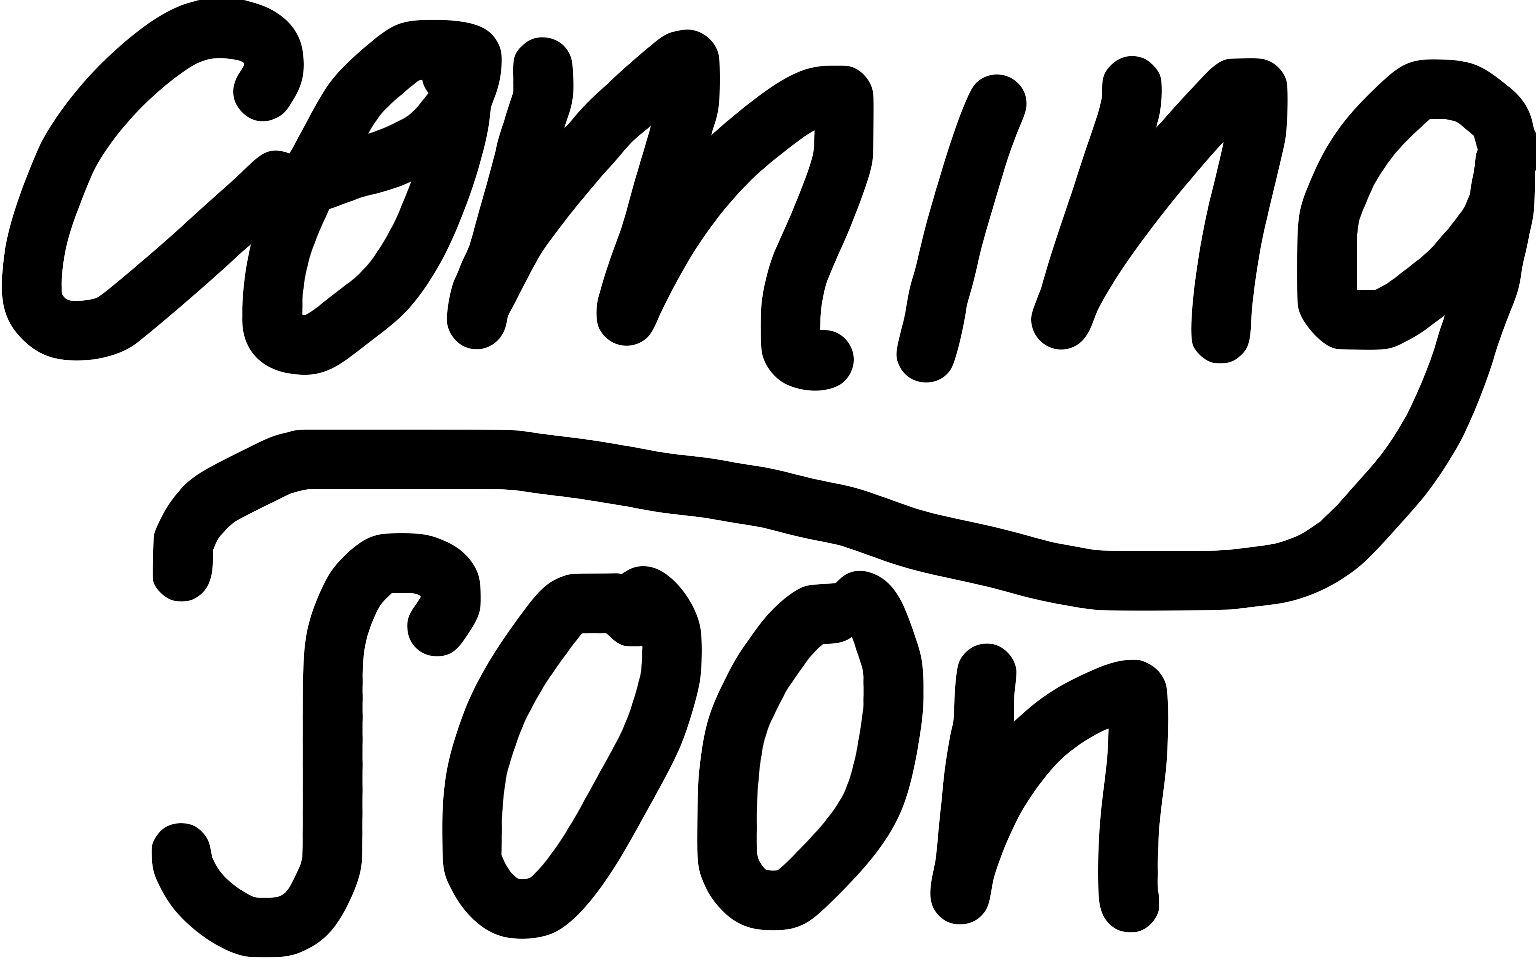 coming
soon